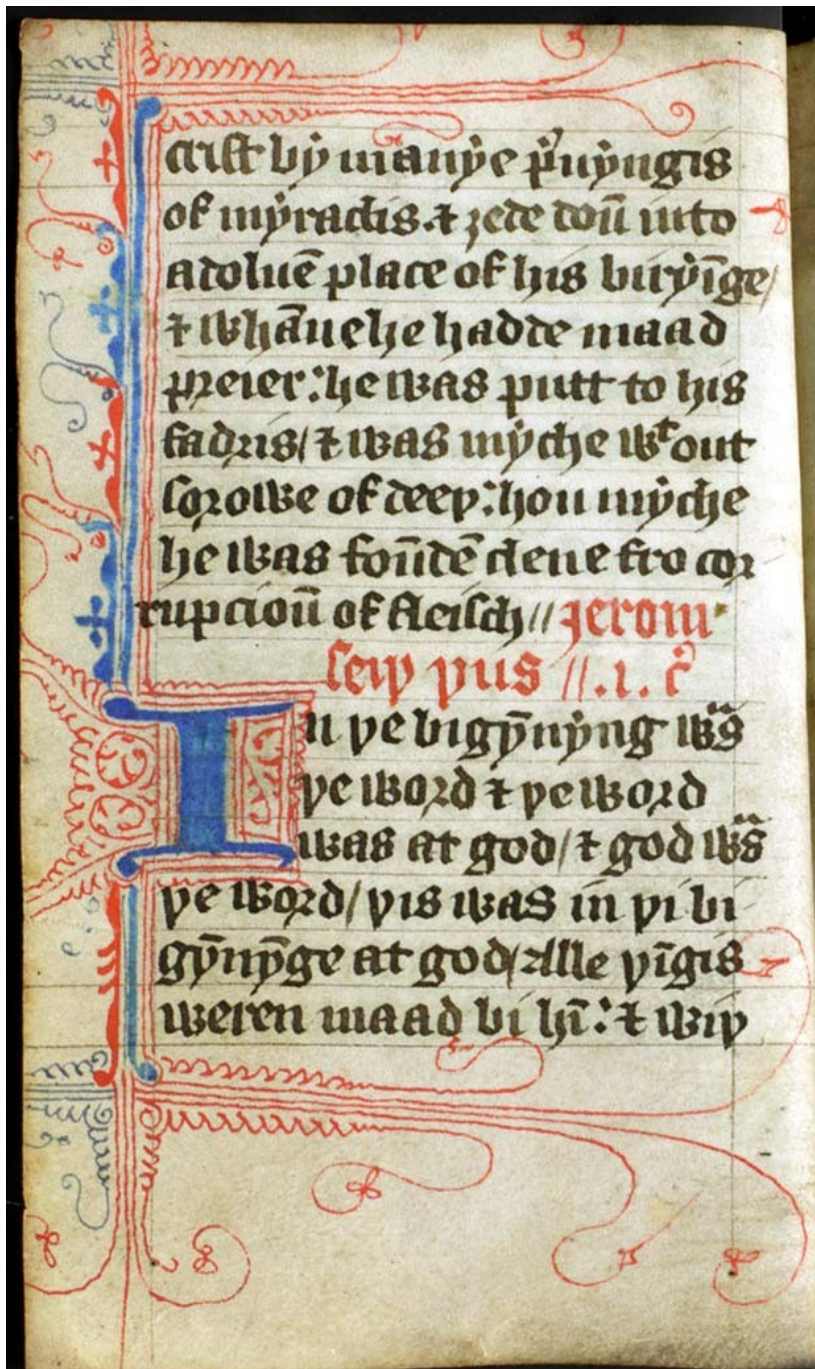 crist bẏ manẏe p̄uẏngis
of mẏraclis. ⁊ ȝede doū into
a doluē place of his birẏīge/
⁊ whāne he hadde maad
preier: he was putt to his
fadris/ ⁊ was mẏche wᵗout
sorowe of deeþ: hou mẏche
he was foūdē clene fro cor
rupcioū of fleisch// Jerom
seiþ þus //.1. c̄
In þe bigẏ̄nẏng wᵃs
þe word ⁊ þe word
was at god/ ⁊ god wᵃs
þe word/ þis was in þi bi
gẏ̄nẏ̄ge at god/ Alle þīgis
weren maad bi hī: ⁊ wiþ